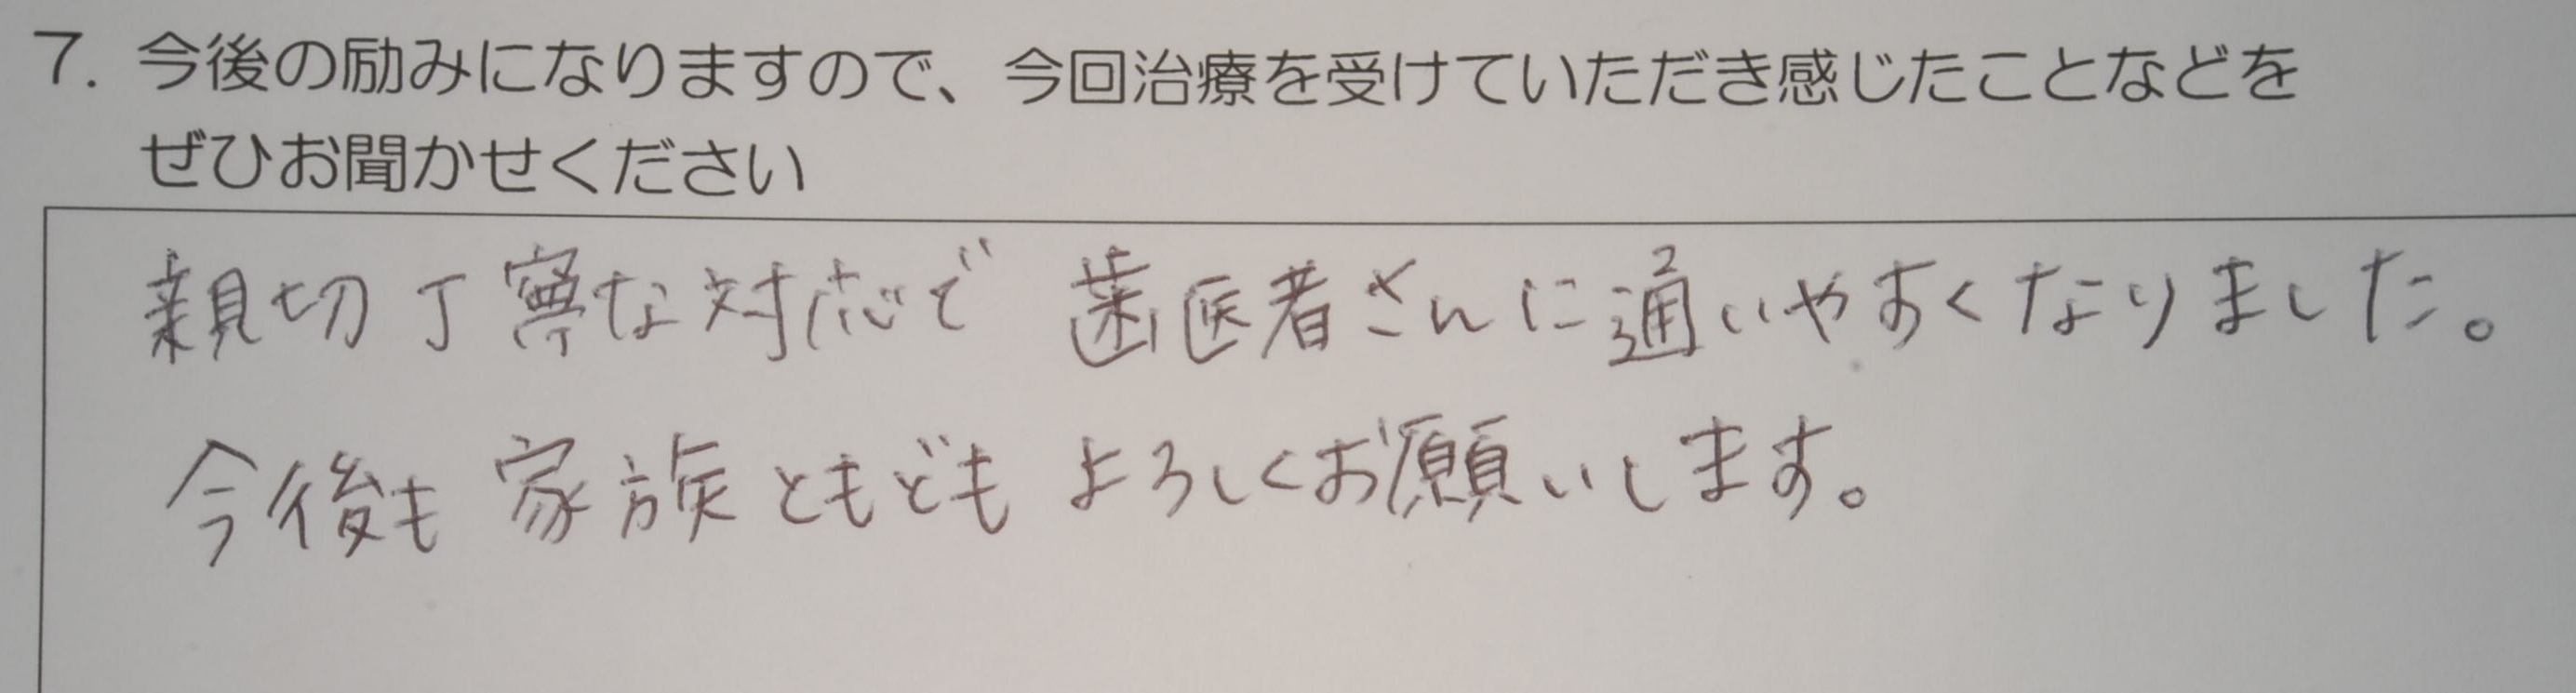 7. 今後の励みになりますので、今回治療を受けていただき感じたことなどを
ぜひお聞かせください
親切丁寧な対応で 歯医者さんに通いやすくなりました。
今後も 家族ともども よろしくお願いします。